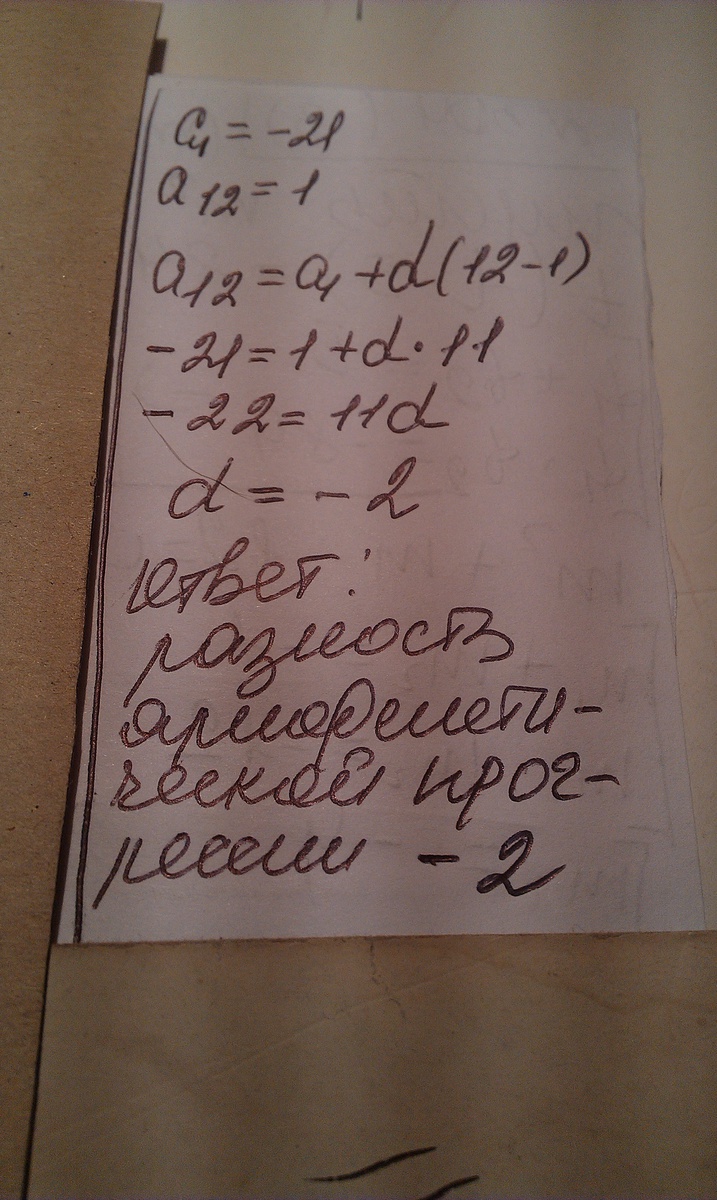 a₁ = -21
a₁₂ = 1
a₁₂ = a₁ + d(12-1)
-21 = 1 + d·11
-22 = 11d
d = -2
Ответ:
разность
арифмети-
ческой прог-
рессии -2